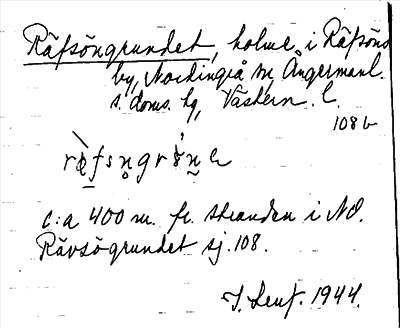 Räfsöngrundet, holme i Räfsöns
by, Nordingrå sn, Ångermanl.
s. doms. hg, Västern. l.
108 b
c:a 400 m. fr. stranden i NO.
Rävsögrundet sj. 108.